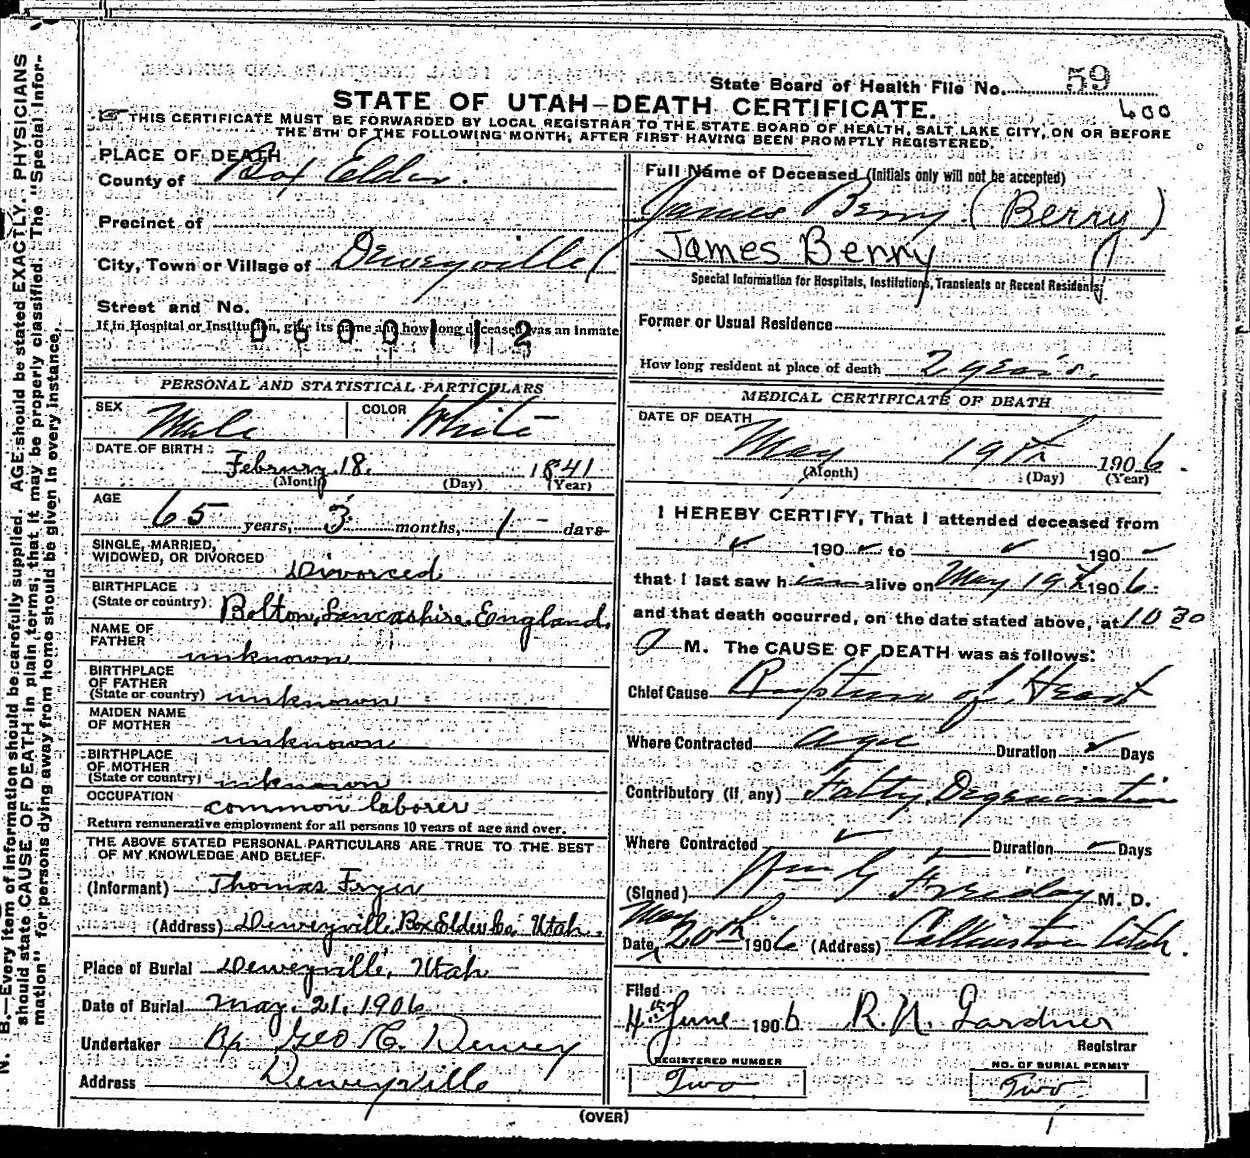 State Board of Health File No. 59
STATE OF UTAH—DEATH CERTIFICATE.
400
THIS CERTIFICATE MUST BE FORWARDED BY LOCAL REGISTRAR TO THE STATE BOARD OF HEALTH, SALT LAKE CITY, ON OR BEFORE
THE 5TH OF THE FOLLOWING MONTH, AFTER FIRST HAVING BEEN PROMPTLY REGISTERED.
PLACE OF DEATH
County of Box Elder.
Precinct of
City, Town or Village of Deweyville
Street and No.
If in Hospital or Institution, give its name and how long deceased was an inmate
0600112
PERSONAL AND STATISTICAL PARTICULARS
SEX Male COLOR White
DATE OF BIRTH: Februry 18. 1841
(Month) (Day) (Year)
AGE 65 years, 3 months, 1 days
SINGLE, MARRIED,
WIDOWED, OR DIVORCED Divorced
BIRTHPLACE
(State or country) Bolton, Lancashire, England.
NAME OF
FATHER unknown
BIRTHPLACE
OF FATHER
(State or country) unknown
MAIDEN NAME
OF MOTHER unknown
BIRTHPLACE
OF MOTHER
(State or country) unknown
OCCUPATION common laborer
Return remunerative employment for all persons 10 years of age and over.
THE ABOVE STATED PERSONAL PARTICULARS ARE TRUE TO THE BEST
OF MY KNOWLEDGE AND BELIEF.
(Informant) Thomas Fryer
(Address) Deweyville Box Elder Co. Utah.
Place of Burial Deweyville, Utah
Date of Burial May. 21. 1906
Undertaker Bp Geo C. Dewey
Address Deweyville
Full Name of Deceased (Initials only will not be accepted)
James Berry (Berry)
James Berry
Special Information for Hospitals, Institutions, Transients or Recent Residents
Former or Usual Residence
How long resident at place of death 2 years.
MEDICAL CERTIFICATE OF DEATH
DATE OF DEATH
May 19th 1906.
(Month) (Day) (Year)
I HEREBY CERTIFY, That I attended deceased from
190 to 190
that I last saw him alive on May 19th 1906
and that death occurred, on the date stated above, at 10 30
a M. The CAUSE OF DEATH was as follows:
Chief Cause Rupture of Heart
Where Contracted age Duration Days
Contributory (if any) Fatty Degeneration
Where Contracted Duration Days
(Signed) Wm G Freiday M. D.
Date May 20th 1906 (Address) Collinston Utah.
Filed
4th June 1906 R. N. Gardner
Registrar
REGISTERED NUMBER
Two
NO. OF BURIAL PERMIT
Two
(OVER)
N. B.—Every item of information should be carefully supplied. AGE should be stated EXACTLY. PHYSICIANS
should state CAUSE OF DEATH in plain terms, that it may be properly classified. The "Special Infor-
mation" for persons dying away from home should be given in every instance.